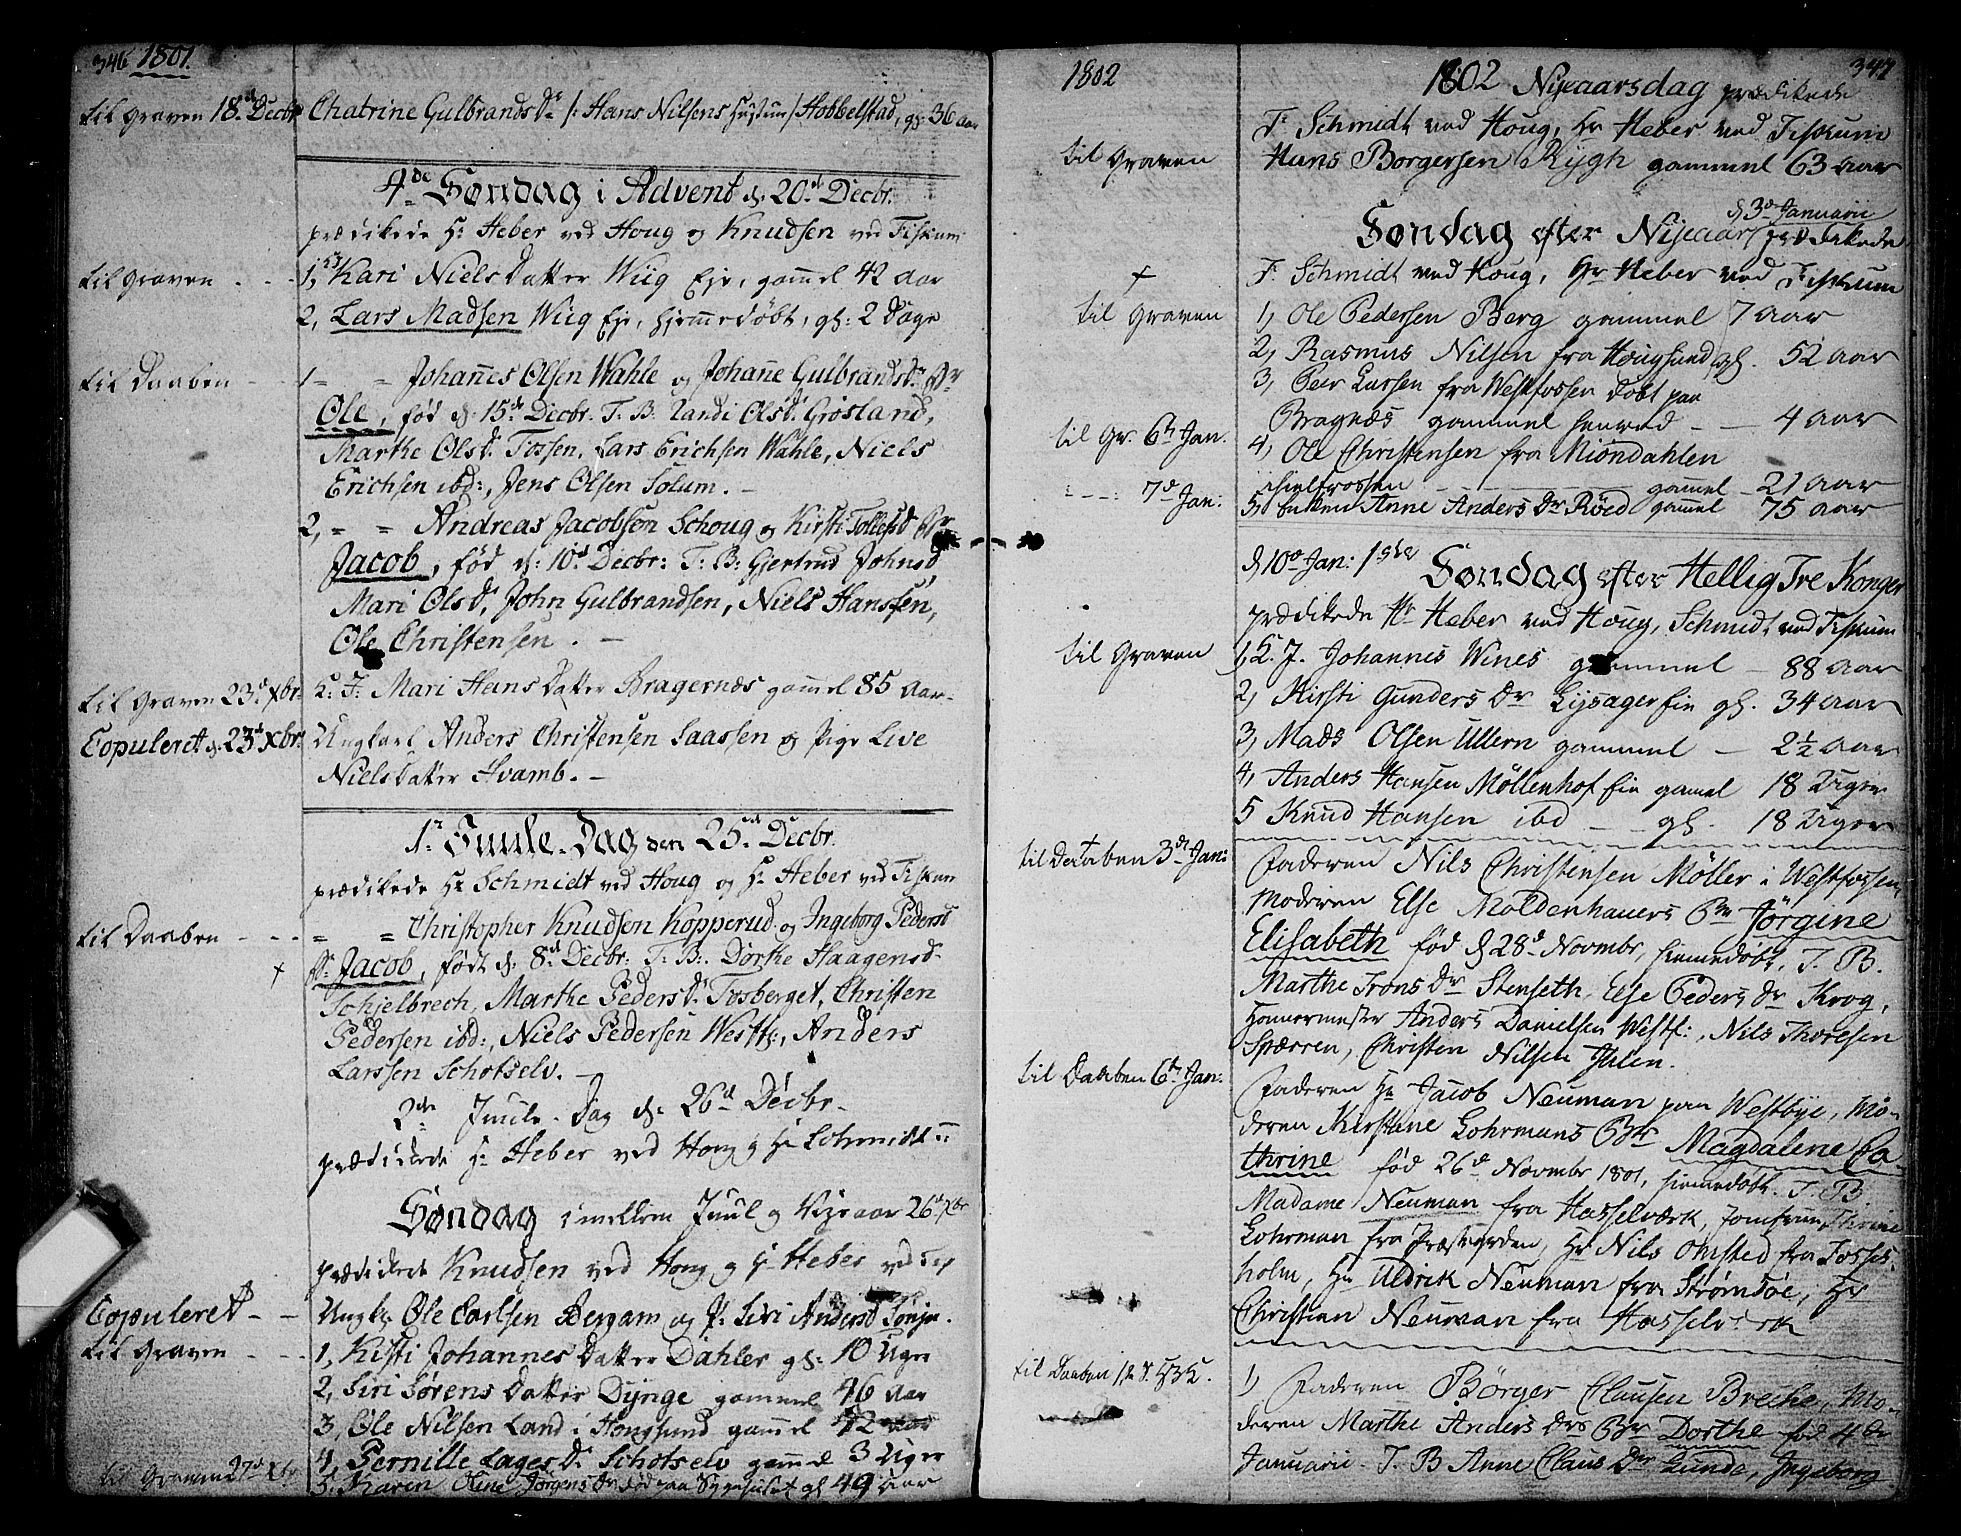 346 1801.
til Graven 18d Decbr Chatrine Gulbrands Dr /: Hans Nilsens Hustrue / Hobbelstad, gl: 36 aar
4de Søndag i Advent d. 20d Decbr.
prædikede Hr Heber ved Houg og Knudsen ved Fiskum
til Graven - - - 1, Kari Niels Datter Wiig Eje, gammel 42 aar
2, Lars Madsen Wiig Eje, hjemmedøbt, gl: 2 Dage
til Daaben - - 1 = = Johannes Olsen Wahle og Johane Gulbrandsdr
Ole, fød d. 15d Decbr. T. B. Randi Olsd. Grøsland,
Marthe Olsd. Fossen, Lars Erichsen Wahle, Niels
Erichsen ibd:, Jens Olsen Solum. -
2, = = Andreas Jacobsen Schoug og Kirsti Tollefsd
Jacob, fød d: 10d Decbr: T. B: Gjertrud Johnsd,
Mari Olsd. John Gulbrandsen, Niels Hanssen,
Ole Christensen. -
til Graven 23d Xbr: L: F: Mari Hans Datter Bragernæs gammel 85 Aar -
Copuleret d. 23d Xbr: Ungkarl Anders Christensen Saassen og Pige Live
Niels Datter Hvamb. -
1te Juule-Dag den 25d Decbr.
prædikede Hr Schmidt ved Houg og Hr Heber ved Fiskum
til Daaben - - - = = Christopher Knudsen Kopperud og Ingeborg Pedersd
+ Jacob, født d: 8d Decbr: T. B: Dorthe Haagensd
Schjelbrech, Marthe Peders Dr Fosberget, Christen
Pedersen ibd:, Niels Pedersen Westf:, Anders
Larssen Schotselv. -
2den Juule-Dag d: 26d Decbr -
prædikede Hr Heber ved Houg og Hr Schmidt =
Søndag imellem Juul og Nyeaar 26d Xbr
prædikede Knudsen ved Houg og Hr Heber ved
Copuleret - - Ungk: Ole Carlsen Bergam og P: Siri Andersd
til Graven - - - 1, Kisti Johannes Datter Dahler gl: 10 Uger
2, Siri Sørens Datter Dynge gammel 46 aar
3, Ole Nilsen Land i Hougsund gammel 42 aar
4, Pernille Lages Dr Schotselv gammel 3 Uger
til Graven 27d Xbr 5. Karen Jørgens Dr død paa gl 49 aar
1802
1802 Nyeaarsdag prædikede 347
F. Schmidt ved Houg, Hr Heber ved Fiskum
til Graven Hans Borgersen Rygh gammel 63 aar
d 3d Januarii
Søndag efter Nyeaar prædikede
F. Schmidt ved Houg, Hr Heber ved Fiskum
+
til Graven 1, Ole Pedersen Berg gammel 7 aar
2, Rasmus Nilsen fra Hougsund gl. 52 aar
3, Peer Larsen fra Westfossen døbt paa
Bragnæs gammel henved - - 4 aar
til Gr. 6te Jan. 4, Ole Christensen fra Miøndahlen
ihielfrossen - - gammel - 21 aar
- - - : 7d Jan: 5, Enken Anne Anders Dr Røed gammel 75 aar
d 10de Jan: 1ste Søndag efter Hellig Tre Konger
prædikede Hr Heber ved Houg, Schmidt ved Fiskum
til Graven 1, L. F. Johannes Wines gammel - 88 aar
2, Kirsti Gunders Dr Lysager Eie gl. 34 aar
3, Mads Olsen Ullern gammel - 2½ aar
4, Anders Hansen Möllenhof Eie gamel 18 Uger
5 Knud Hansen ibd - - gl. 18 Uger
til Daaben 3de Jan: Faderen Nils Christensen Møller i Westfossen,
Moderen Else Moldenhauers Br Jørgine
Elisabeth fød d 28d Novmbr, hiemedøbt, T. B.
Marthe Irons Dr Stenseth, Else Peders Dr Krog,
Hammermester Anders Danielsen Westf:, Nils Thoresen
Spærren, Christen Nilsen Ihlen.
til Daaben 6te Jan: Faderen Hr Jacob Neuman paa Westbye, Mo-
deren Kirstine Lohrmans Br Magdalene Ca-
thrine fød 26de Novmbr 1801, hiemedøbt. T. B.
Madame Neuman fra Hasselværk, Jomfrue Thrine
Lohrman fra Præstgarden, Hr Nils Omsted fra Fosses-
holm, Hr Uldrik Neuman fra Strømsøe, Hr
Christian Neuman fra Hasselværk
til Daaben 1, Faderen Børger Clausen Breche, Mo-
deren Marthe Anders Drs Br Dorthe fød 4de
Januarii. T. B Anne Claus Dr Lunde, Ingeborg